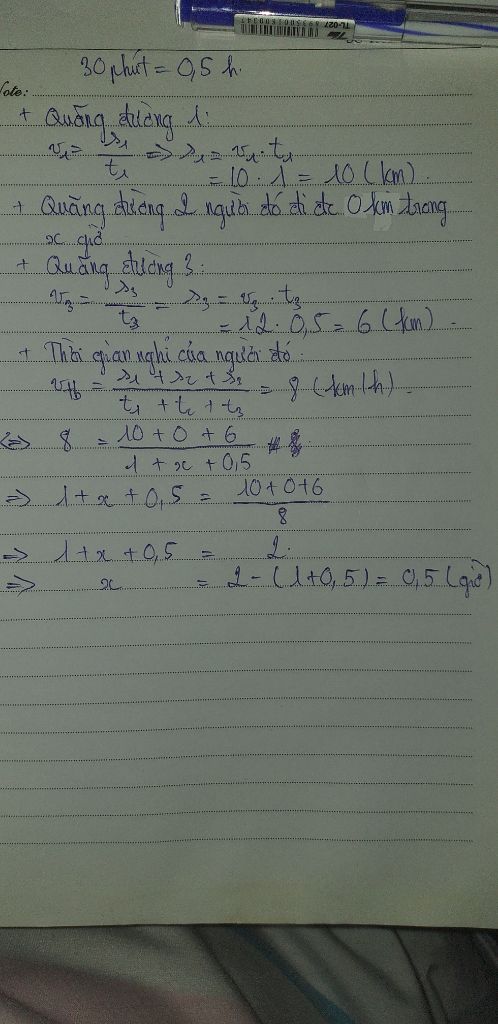 TL-027 8935001800347
30 phút = 0,5 h.
Note:
+ Quãng đường 1:
v₁ = s₁/t₁ => s₁ = v₁ . t₁
= 10 . 1 = 10 (km).
+ Quãng đường 2 người đó đi đc 0 km trong
x giờ
+ Quãng đường 3:
v₃ = s₃/t₃ = s₃ = v₃ . t₃
= 12 . 0,5 = 6 (km).
+ Thời gian nghỉ của người đó.
vtb = (s₁ + s₂ + s₃)/(t₁ + t₂ + t₃) = 8 (km/h).
<=> 8 = (10 + 0 + 6)/(1 + x + 0,5)
=> 1 + x + 0,5 = (10+0+6)/8
=> 1 + x + 0,5 = 2.
=> x = 2 - (1+0,5) = 0,5 (giờ)